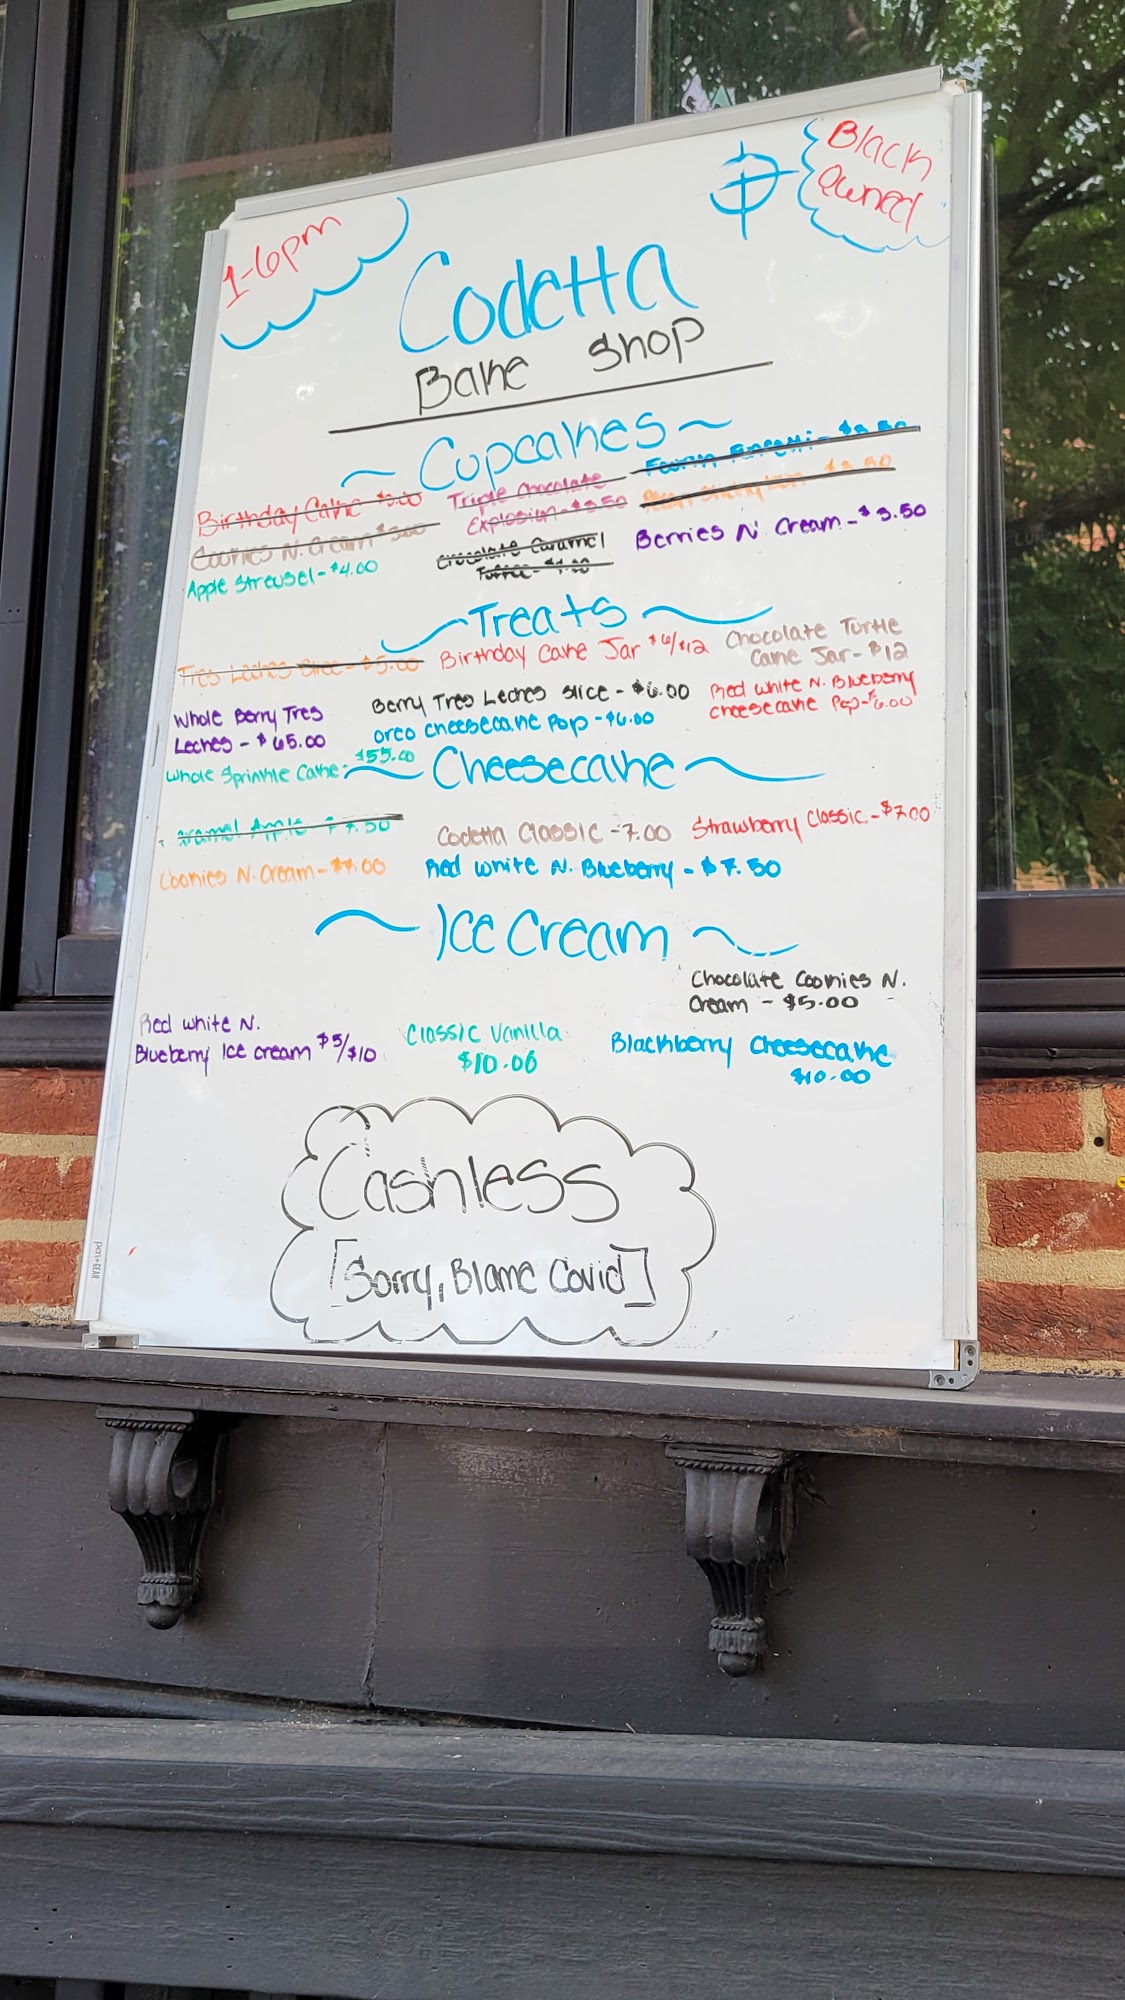 1-6pm
Black
Owned
Codetta
Bake Shop
~ Cupcakes ~
Birthday Cake $3.00
Triple Chocolate
Explosion - $3.50
- $3.50
Cookies N. Cream $3.00
Chocolate Caramel
Toffee - $4.00
- $3.50
Apple Streusel - $4.00
Berries N. Cream - $3.50
Treats
Tres Leches Slice - $5.00
Birthday Cake Jar $6/$12
Chocolate Turtle
Cake Jar - $12
Whole Berry Tres
Leches - $65.00
Berry Tres Leches Slice - $6.00
Oreo Cheesecake Pop - $6.00
Red White N. Blueberry
Cheesecake Pop - $6.00
Whole Sprinkle Cake - $55.00
Cheesecake
Caramel Apple - $7.50
Codetta Classic - 7.00
Strawberry Classic - $7.00
Cookies N. Cream - $7.00
Red White N. Blueberry - $7.50
Ice Cream
Chocolate Cookies N.
Cream - $5.00
Red White N.
Blueberry Ice Cream $5/$10
Classic Vanilla
$10.00
Blackberry Cheesecake
$10.00
Cashless
[Sorry, Blame Covid]